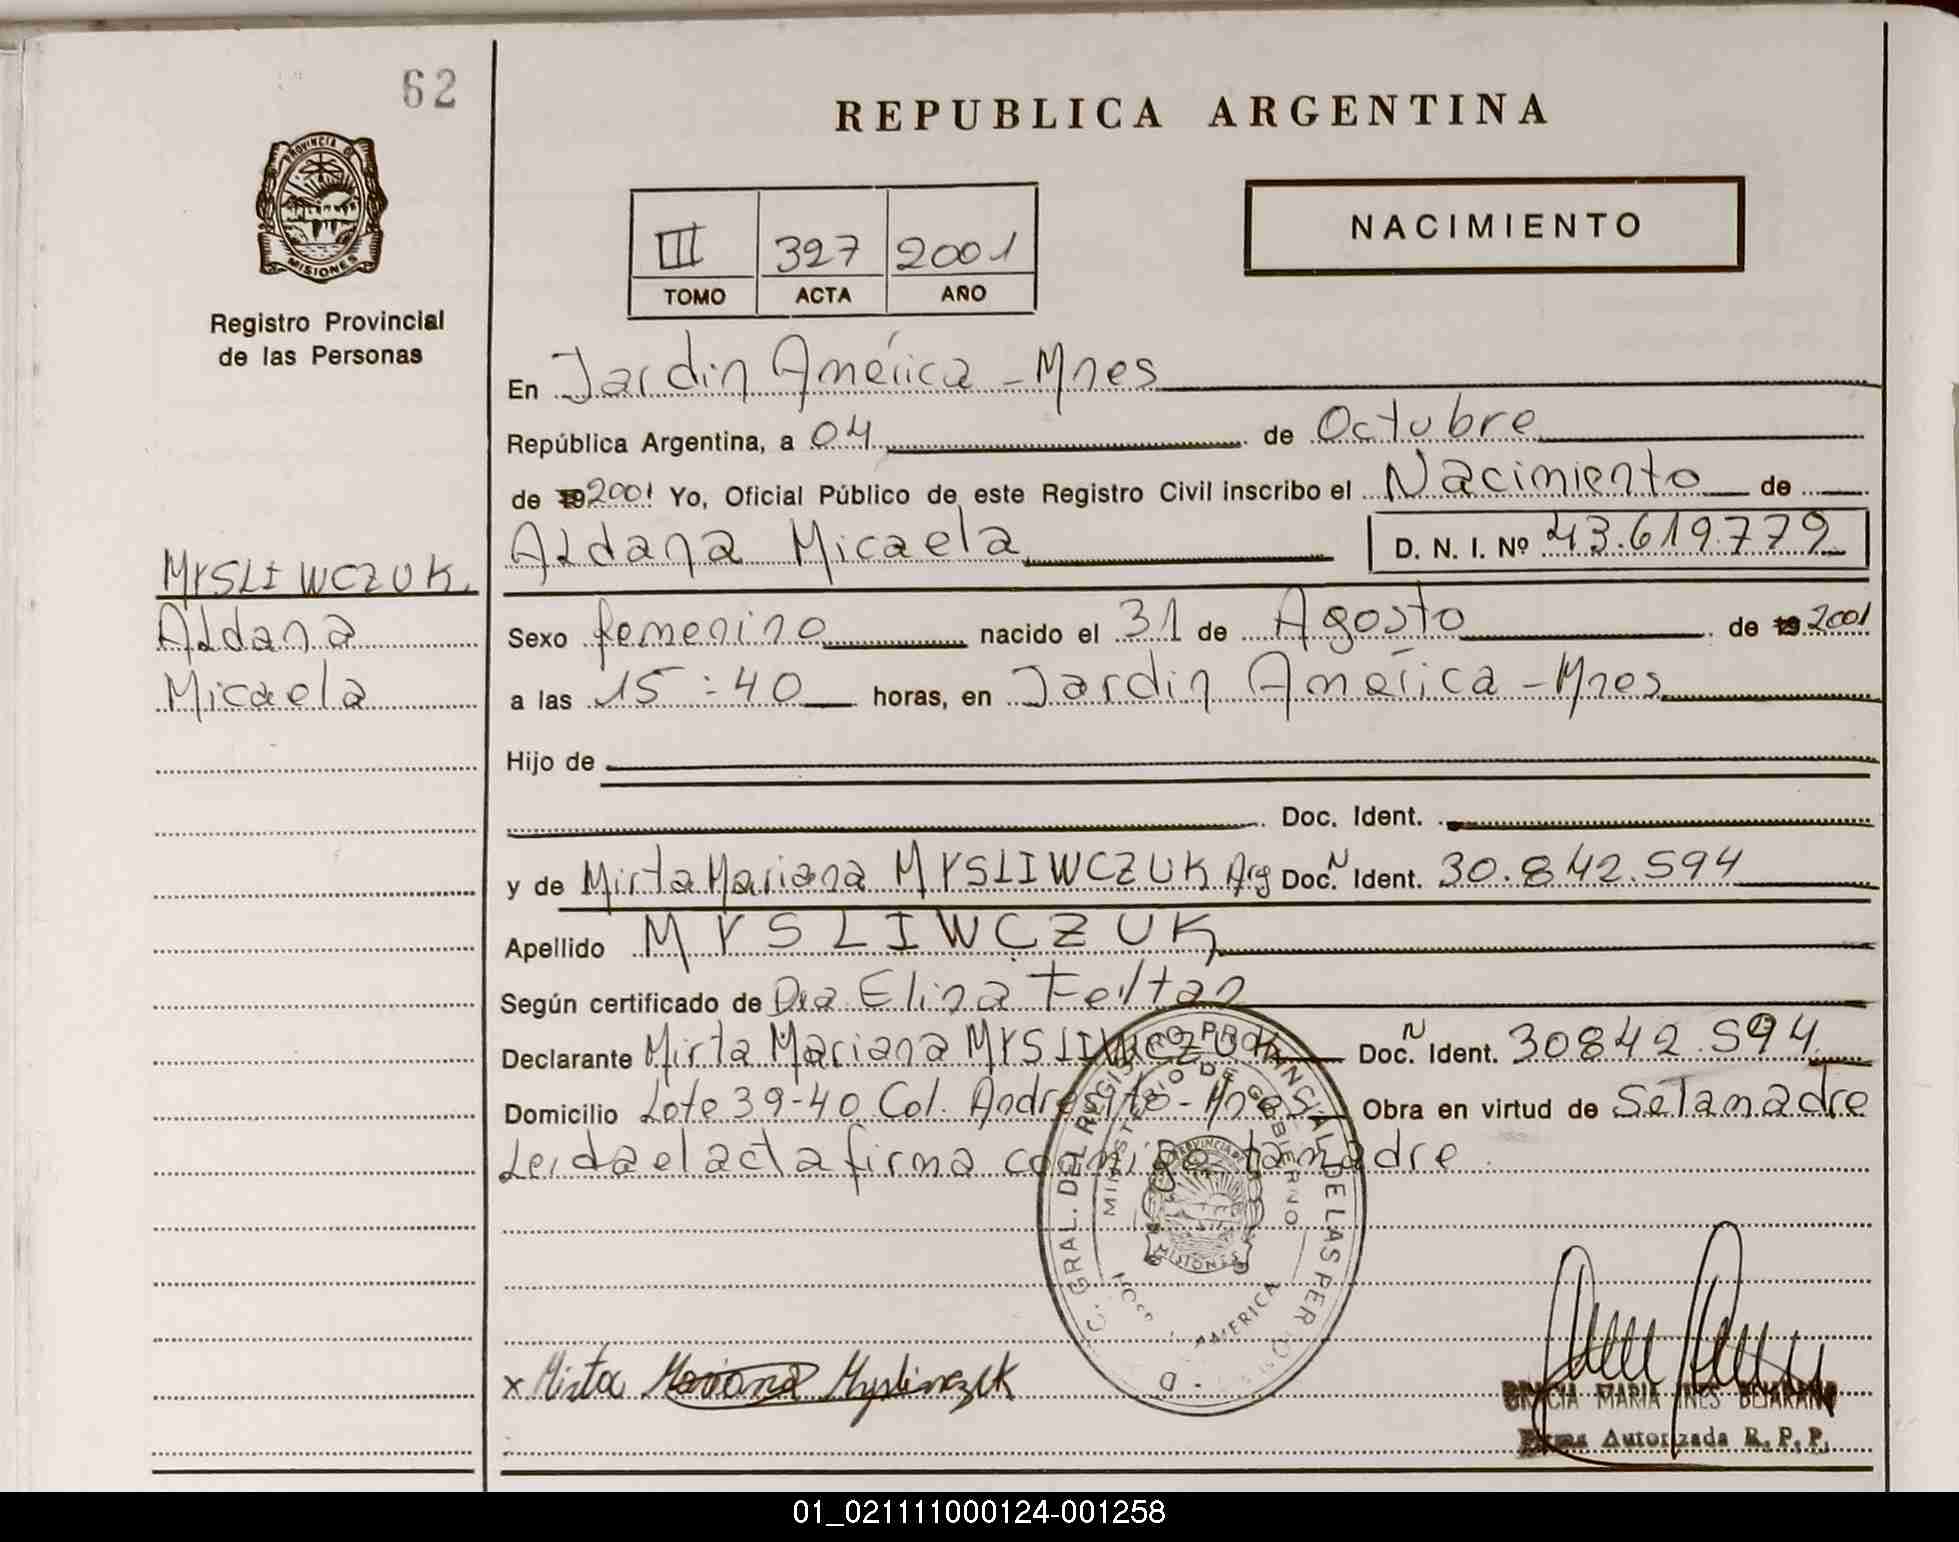 62
REPUBLICA ARGENTINA
PROVINCIA DE
MISIONES
NACIMIENTO
III 327 2001
TOMO ACTA AÑO
Registro Provincial
de las Personas
En Jardin América - Mnes
República Argentina, a 04 de Octubre
de 19 2001 Yo, Oficial Público de este Registro Civil inscribo el Nacimiento de
Aldana Micaela D. N. I. Nº 43.619.779
MYSLIWCZUK
Aldana
Micaela
Sexo femenino nacido el 31 de Agosto de 19 2001
a las 15:40 horas, en Jardin América - Mnes
Hijo de
Doc. Ident.
y de Mirta Mariana MYSLIWCZUK Arg Doc. N Ident. 30.842.594
Apellido MYSLIWCZUK
Según certificado de Dra. Elina Feiltan
Declarante Mirta Mariana MYSLIWCZUK Doc. N Ident. 30842.594
Domicilio Lote 39-40 Col. Andresito - Mnes Obra en virtud de Se la madre
Leida el acta firma conmigo la madre
GRAL. DEL REGISTRO PROVINCIAL DE LAS PER
MINISTERIO DE GOBIERNO
PROVINCIA DE
MISIONES
AMERICA
x Mirta Mariana Mysliwczuk
GRACIA MARIA INES BEJARANO
Firma Autorizada R. P. P.
01_021111000124-001258